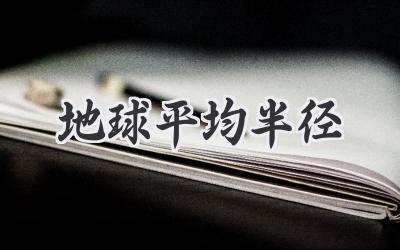 地球平均半径